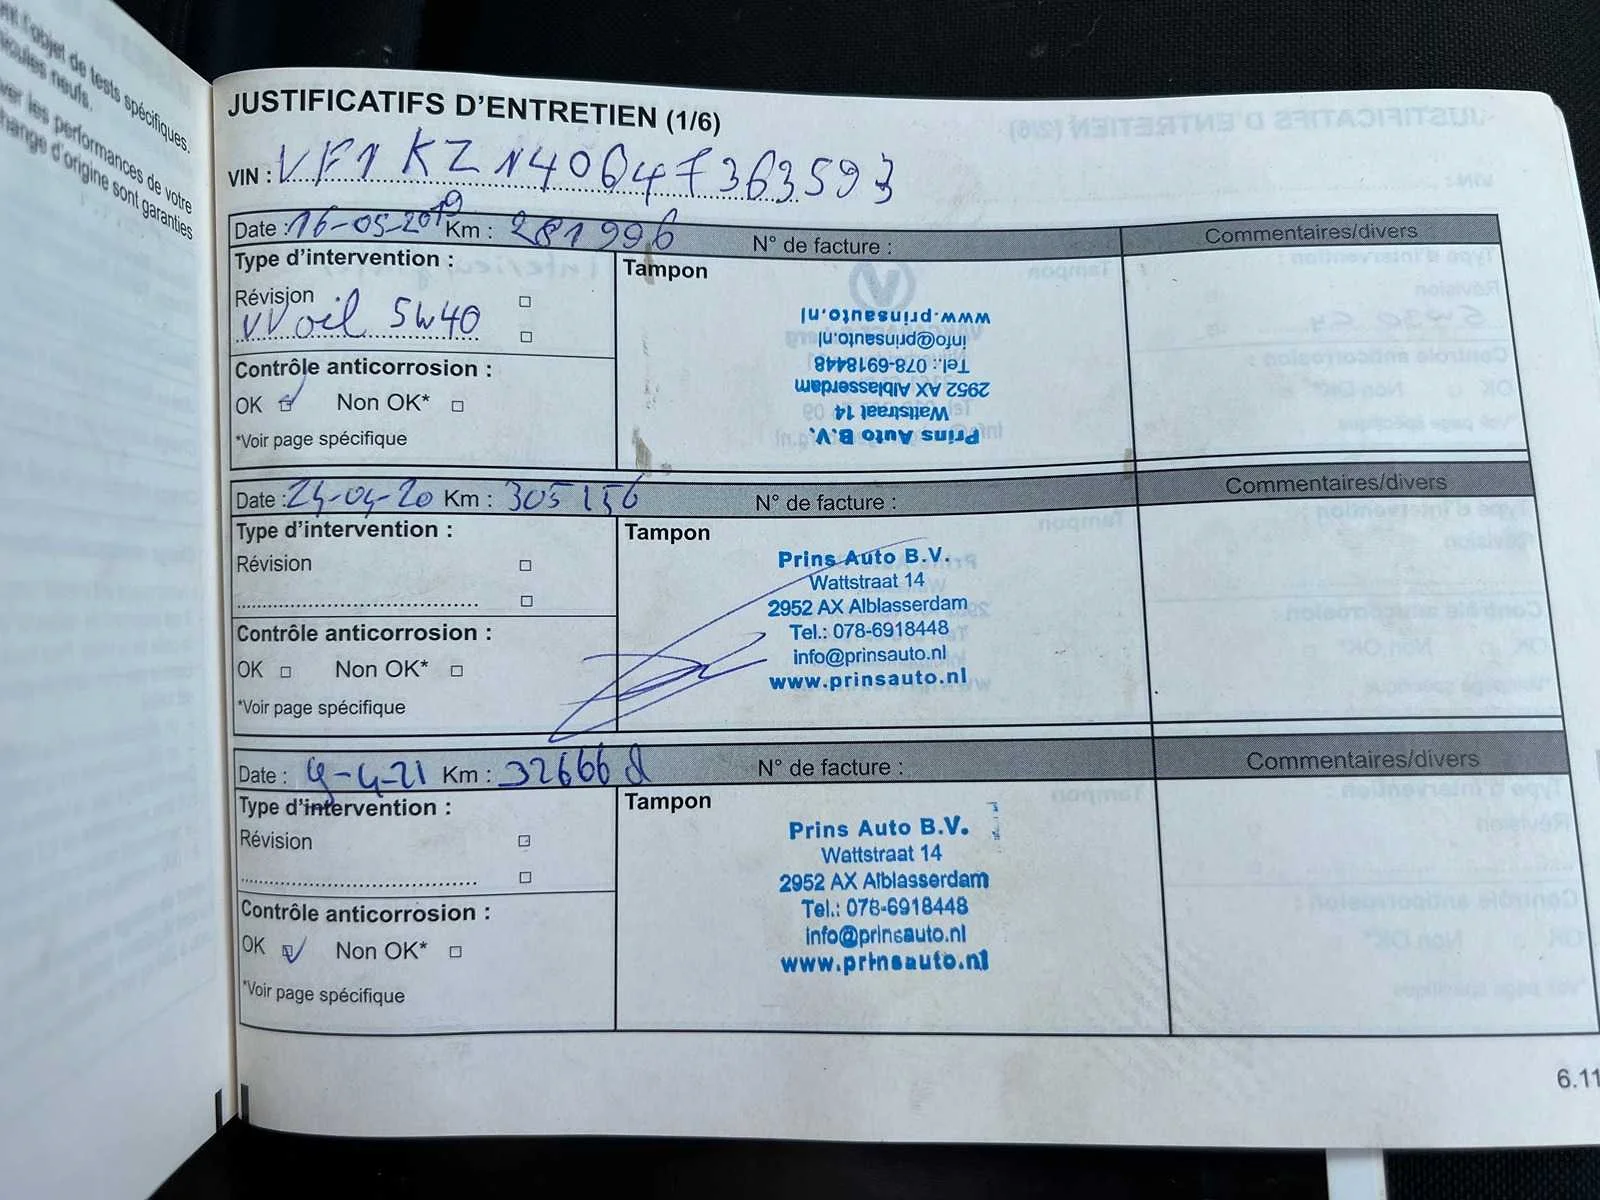 nt l'objet de tests spécifiques.
icules neufs.
ver les performances de votre
hange d'origine sont garanties
JUSTIFICATIFS D'ENTRETIEN (1/6)
VIN : VF1KZ140647363593
Date : 16-05-2019 Km : 281996 N° de facture : Commentaires/divers
Type d'intervention : Tampon
Révision
VV oil 5W40
Contrôle anticorrosion :
OK Non OK*
*Voir page spécifique
Prins Auto B.V.
Wattstraat 14
2952 AX Alblasserdam
Tel.: 078-6918448
info@prinsauto.nl
www.prinsauto.nl
Date : 24-04-20 Km : 305156 N° de facture : Commentaires/divers
Type d'intervention : Tampon
Révision
Contrôle anticorrosion :
OK Non OK*
*Voir page spécifique
Prins Auto B.V.
Wattstraat 14
2952 AX Alblasserdam
Tel.: 078-6918448
info@prinsauto.nl
www.prinsauto.nl
Date : 9-4-21 Km : 32666 N° de facture : Commentaires/divers
Type d'intervention : Tampon
Révision
Contrôle anticorrosion :
OK Non OK*
*Voir page spécifique
Prins Auto B.V.
Wattstraat 14
2952 AX Alblasserdam
Tel.: 078-6918448
info@prinsauto.nl
www.prinsauto.nl
6.11